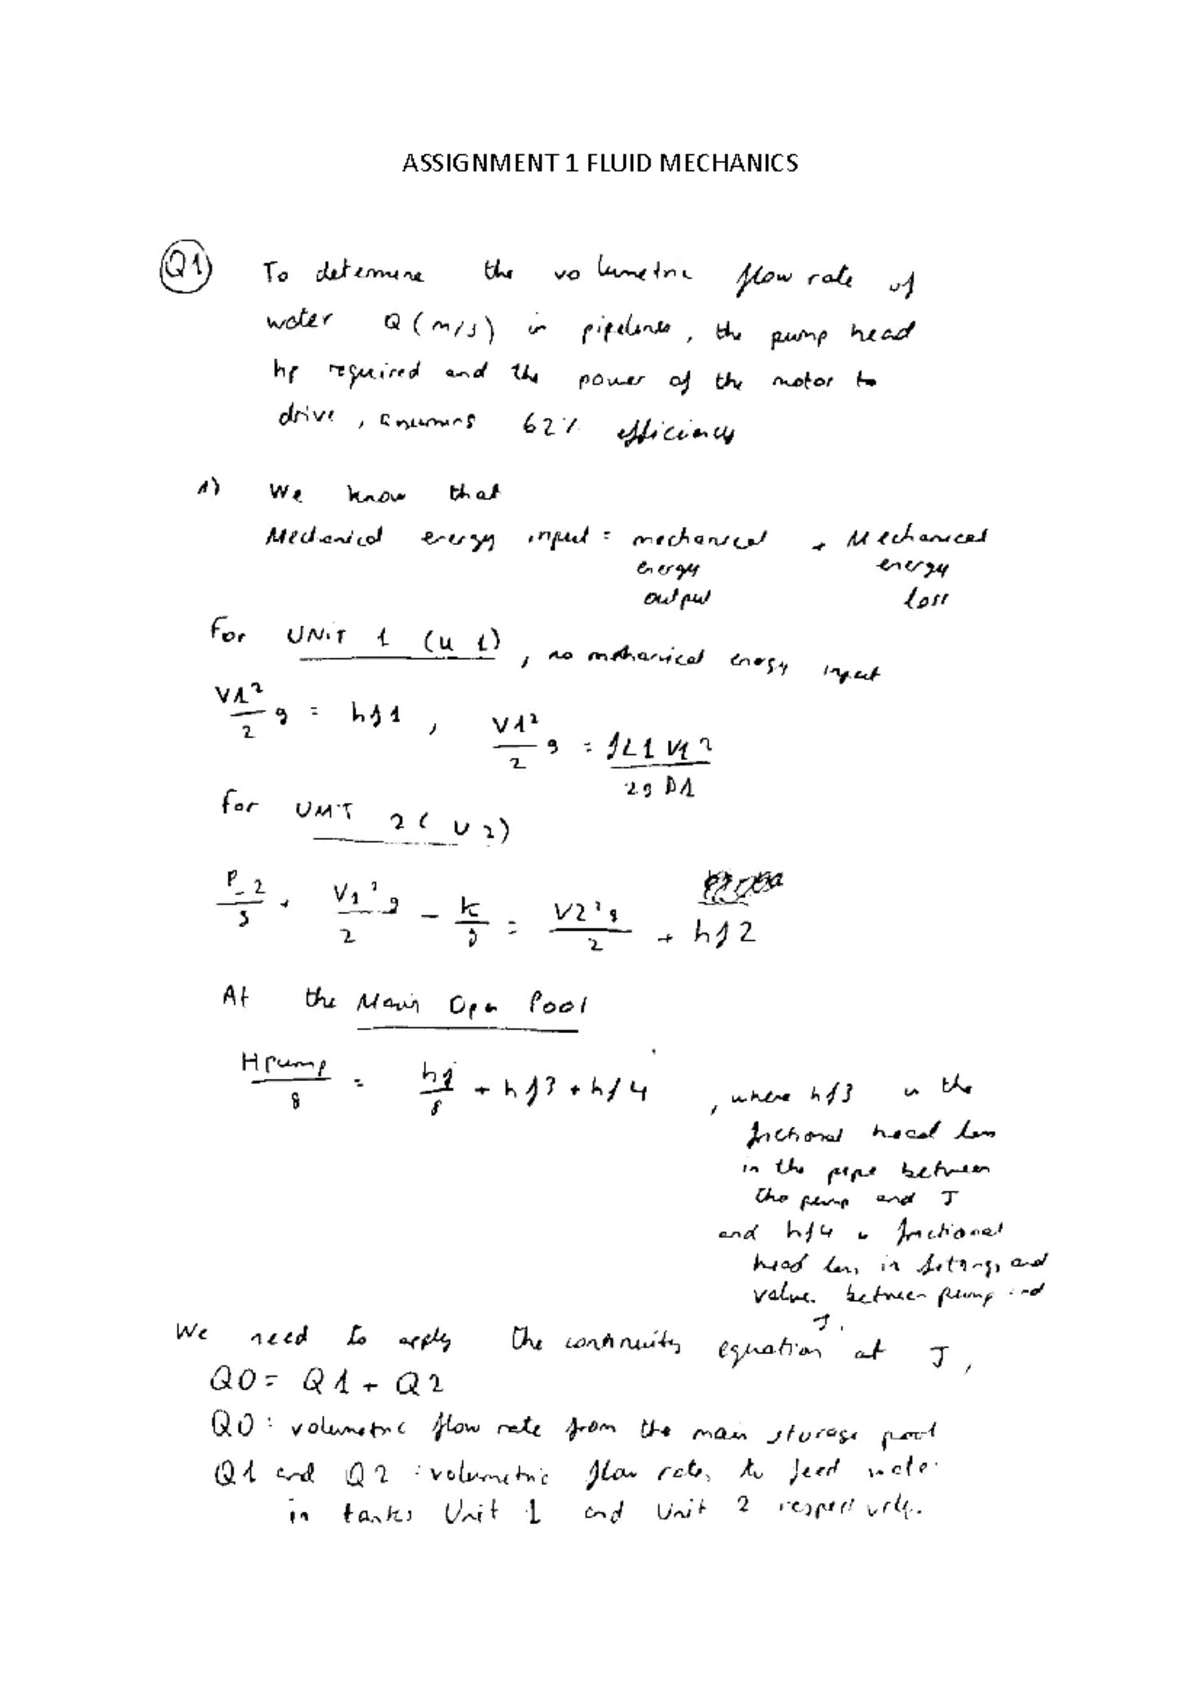 ASSIGNMENT 1 FLUID MECHANICS
Q1) To determine the volumetric flow rate of
water Q (m/s) in pipelines, the pump head
hp required and the power of the motor to
drive, assumes 62% efficiency
1) We know that
Mechanical energy input = mechanical energy output + Mechanical energy loss
For UNIT 1 (U 1), no mechanical energy input
V1²/2 g = hf1, V1²/2 g = fL1 V1²/2g D1
For UNIT 2 (U 2)
P_2/g + V1²g/2 - k/g = V2²g/2 + hf2
At the Main Open Pool
Hpump/8 = hf/8 + hf3 + hf4, where hf3 is the
frictional head loss
in the pipe between
the pump and J
and hf4 is frictional
head loss in fittings and
valve between pump and
J.
We need to apply the continuity equation at J,
Q0 = Q1 + Q2
Q0 : volumetric flow rate from the main storage pool
Q1 and Q2 : volumetric flow rates to feed water
in tanks Unit 1 and Unit 2 respectively.